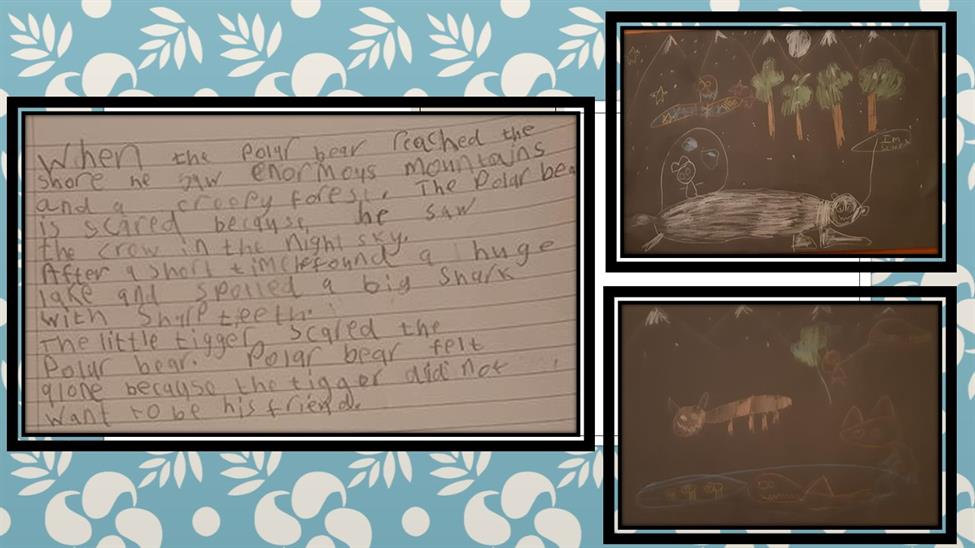 When the Polar bear reached the
shore he saw enormous mountains
and a creepy forest. The Polar bea
is scared because he saw
the crow in the night sky.
After a short time he found a huge
lake and spotted a big shark
with sharp teeth.
The little tigger scared the
Polar bear. Polar bear felt
alone because the tigger did not
want to be his friend.
I'm